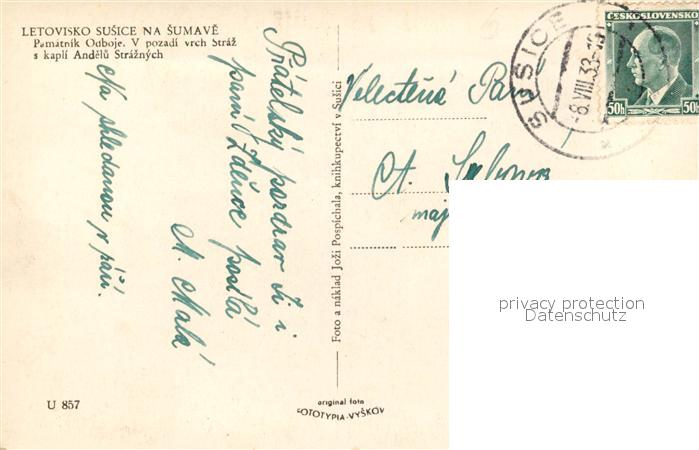 LETOVISKO SUŠICE NA ŠUMAVĚ
Památník Odboje. V pozadí vrch Stráž
s kaplí Andělů Strážných
Přátelský pozdrav Ti i
paní Zdence posílá
M. Malá
Na shledanou v září.
Foto a náklad Joži Pospíchala, knihkupectví v Sušici
U 857
original foto
FOTOTYPIA-VYŠKOV
Velectěná Paní
A.
maj
SUŠICE
-8.VIII.38-
ČESKOSLOVENSKO
50h 50h
privacy protection
Datenschutz